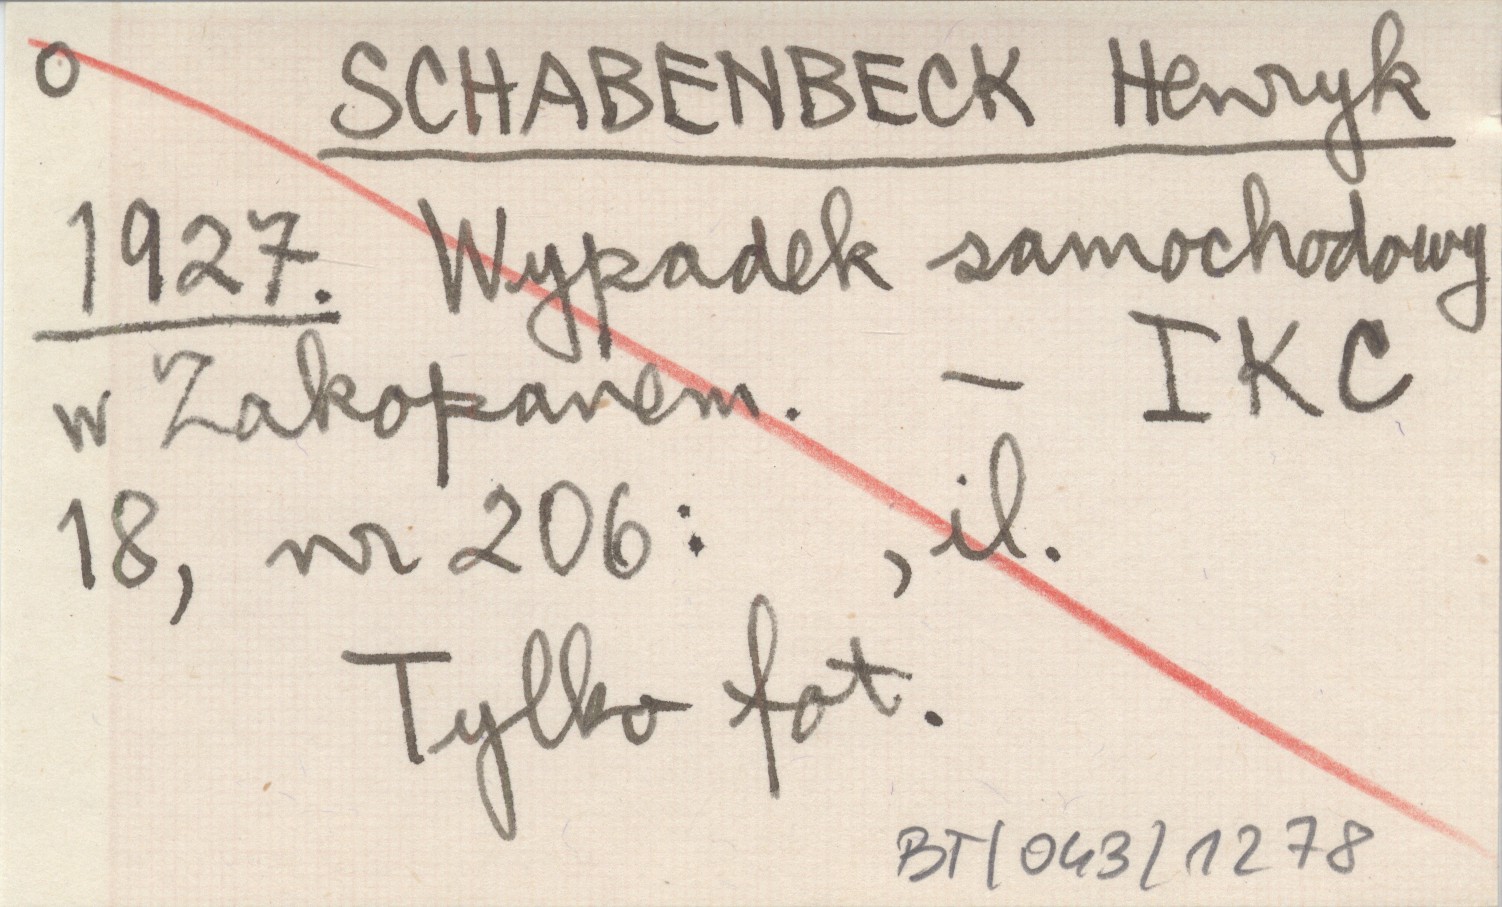 o SCHABENBECK Henryk
1927. Wypadek samochodowy
w Zakopanem. – IKC
18, nr 206: , il.
Tylko fot.
BT/043/1278